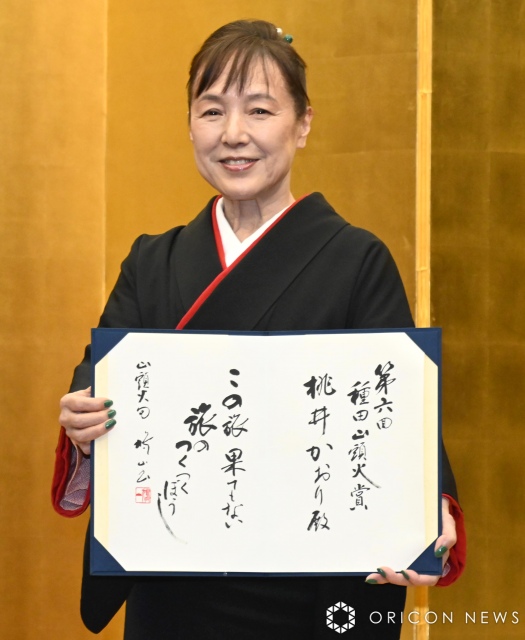 第六回
種田山頭火賞
桃井かおり殿
この旅果てもない
旅の
つくつくぼうし
山頭火句
ORICON NEWS